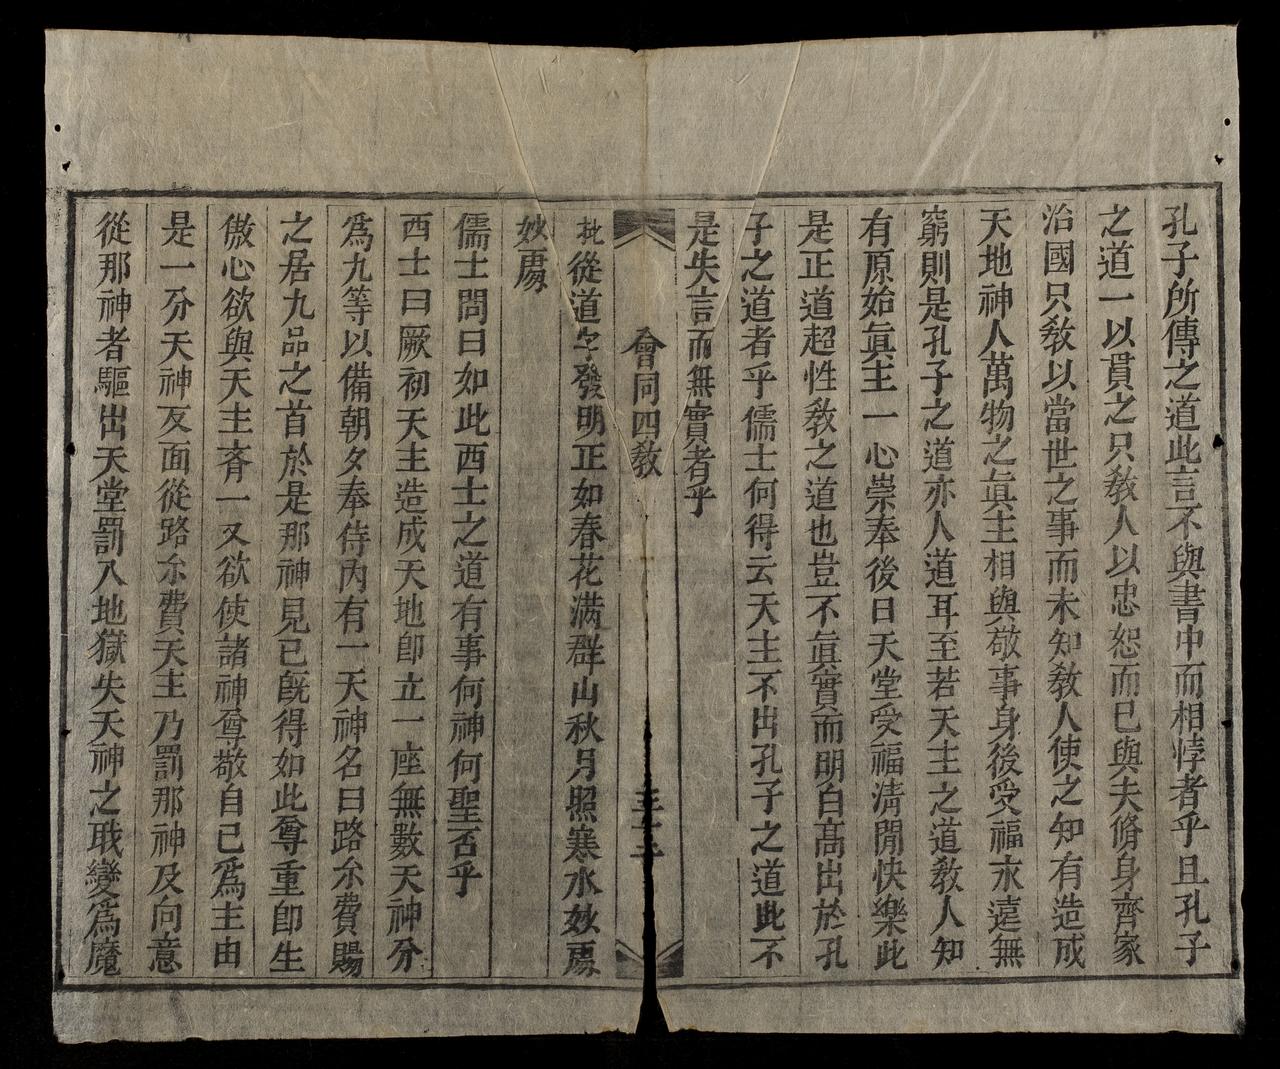 孔子所傳之道此言不與書中而相悖者乎且孔子
之道一以貫之只教人以忠恕而已與夫脩身齊家
治國只教以當世之事而未知教人使之知有造成
天地神人萬物之眞主相與敬事身後受福永遠無
窮則是孔子之道亦人道耳至若天主之道教人知
有原始眞主一心崇奉後日天堂受福清閒快樂此
是正道超性教之道也豈不眞實而明白高出於孔
子之道者乎儒士何得云天主不出孔子之道此不
是失言而無實者乎
會同四教
批從道字發明正如春花滿群山秋月照寒水妙
妙
儒士問曰如此西士之道有事何神何聖否乎
西士曰厥初天主造成天地卽立一座無數天神分
爲九等以備朝夕奉侍內有一天神名曰路尒費賜
之居九品之首於是那神見已旣得如此尊重卽生
傲心欲與天主齊一又欲使諸神尊敬自已爲主由
是一分天神反面從路尒費天主乃罰那神及向意
從那神者驅出天堂罰入地獄失天神之職變爲魔